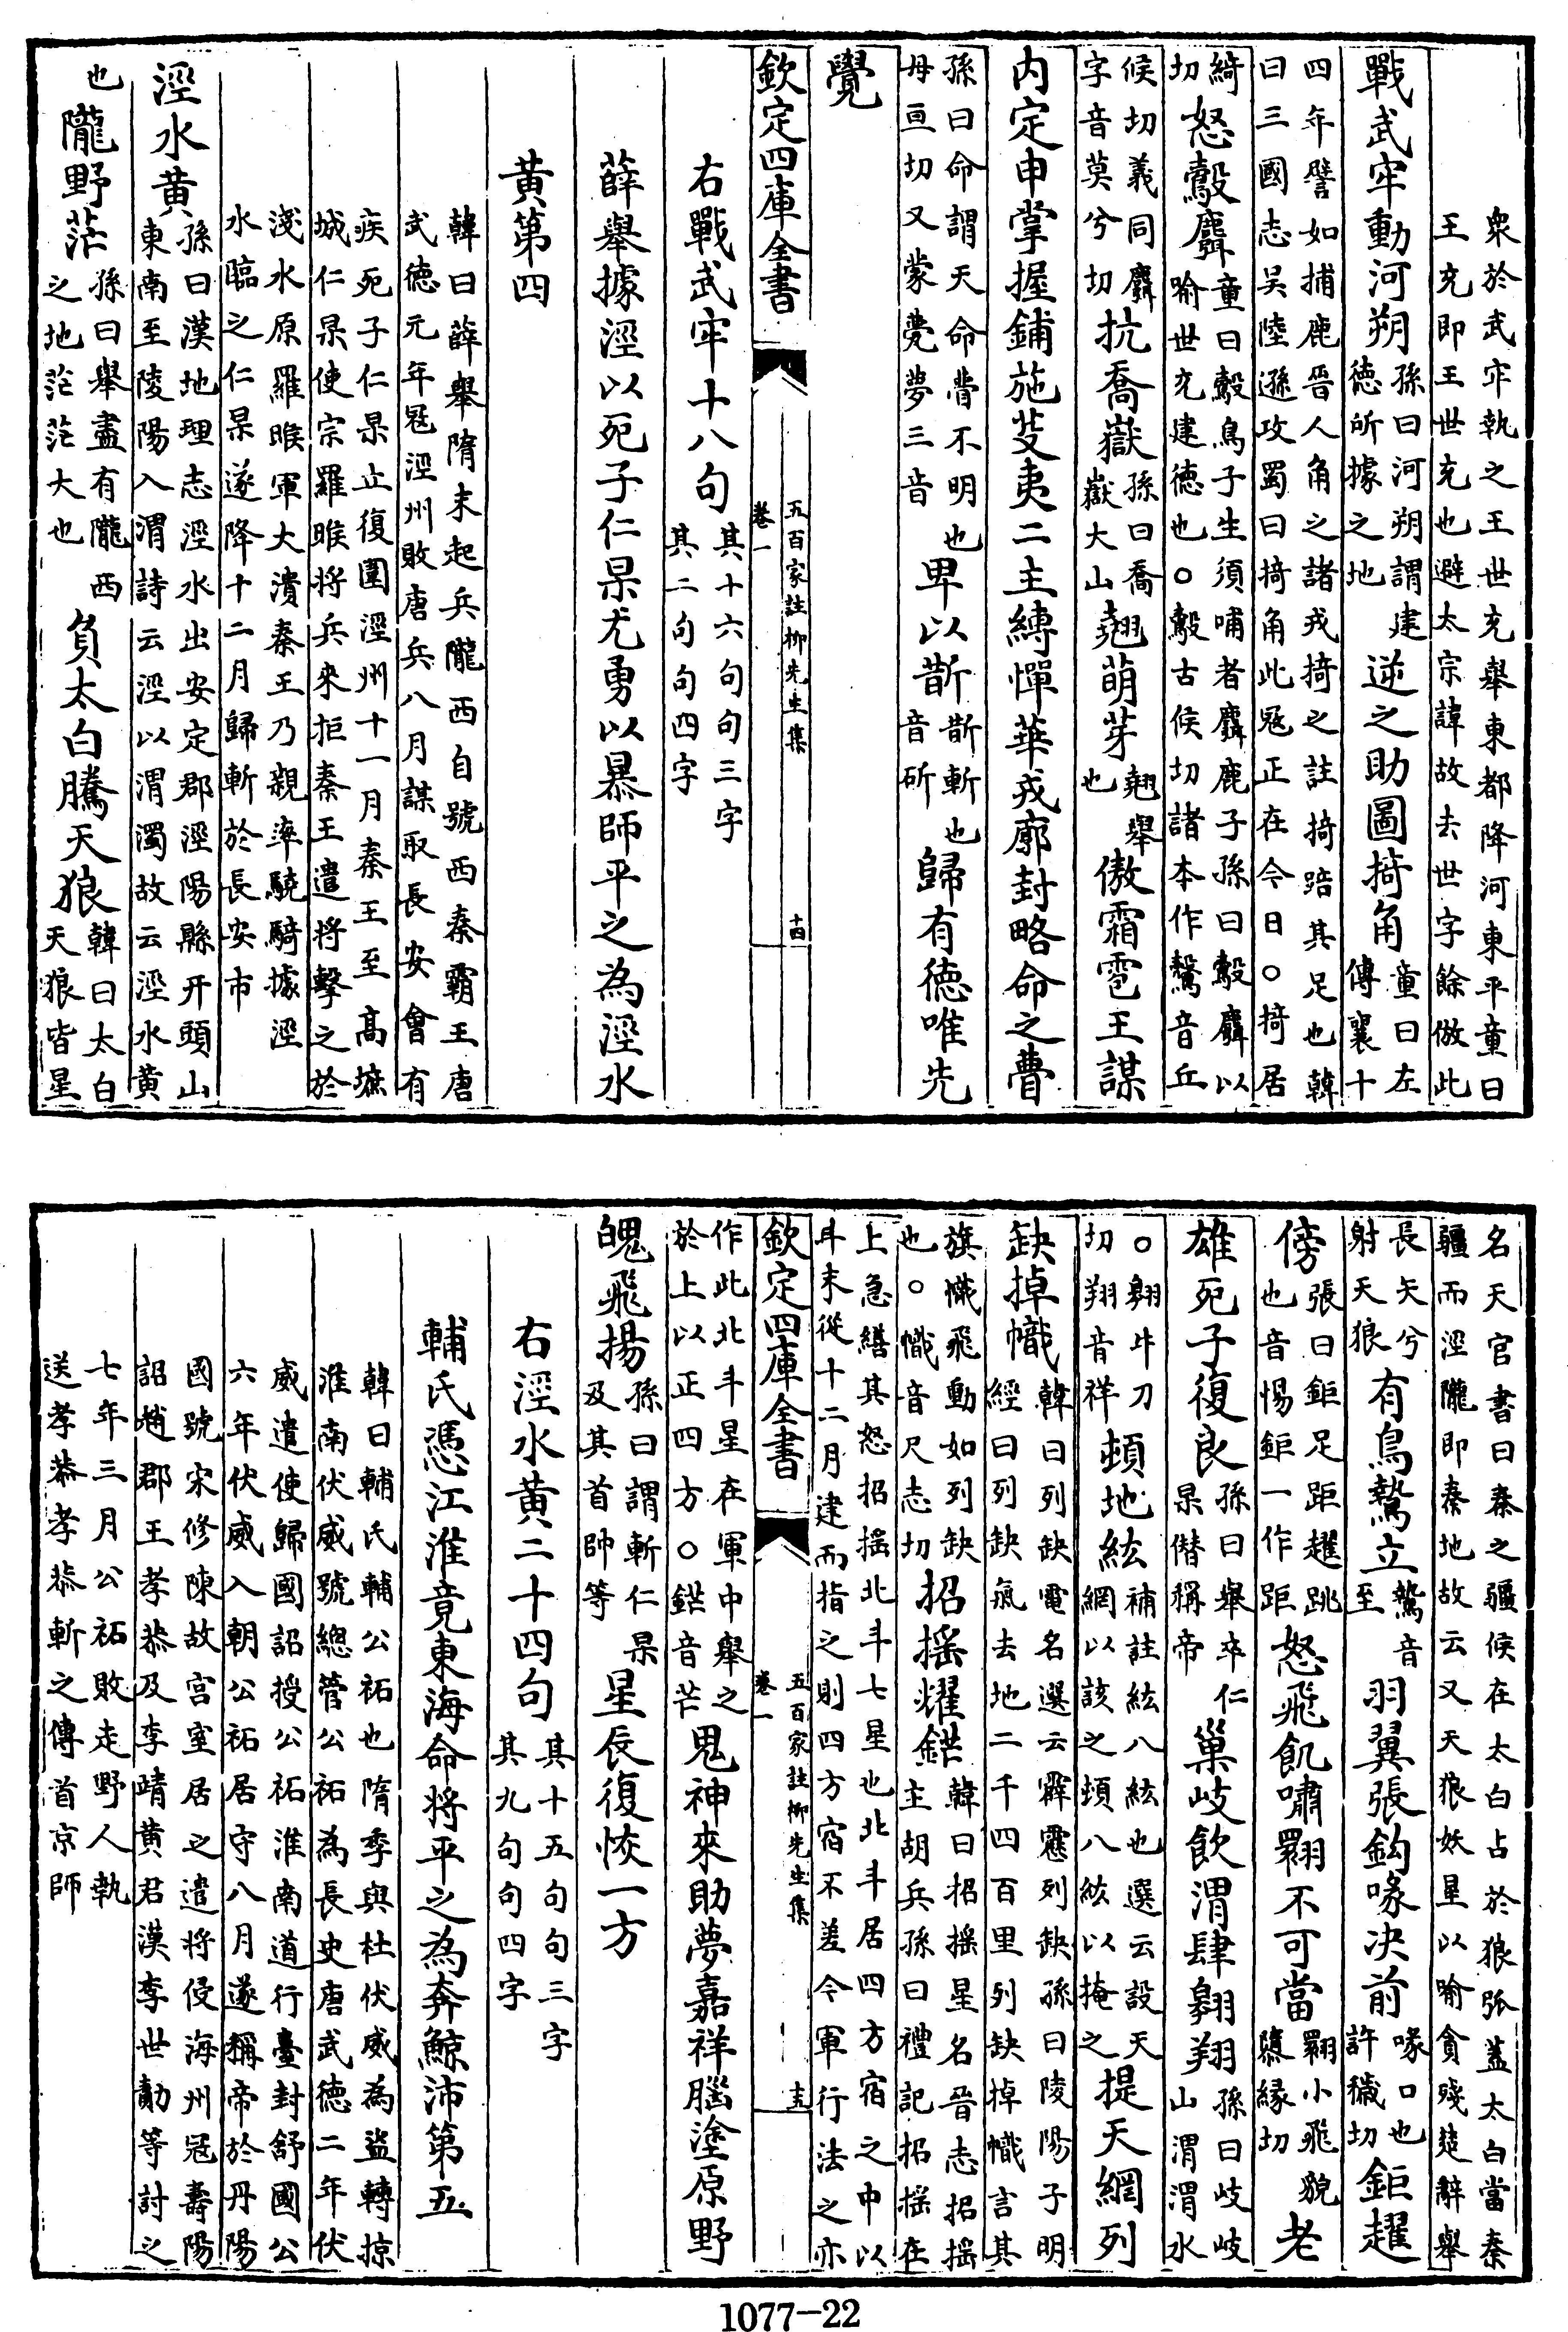 衆於武牢執之王世充舉東都降河東平童曰
王充即王世充也避太宗諱故去世字餘倣此
戰武牢動河朔孫曰河朔謂建德所據之地逆之助圖掎角童曰左傳襄十
四年譬如捕鹿晋人角之諸戎掎之註掎踣其足也韓
曰三國志吳陸遜攻蜀曰掎角此冦正在今日○掎居
綺切怒鷇麛童曰鷇鳥子生須哺者麛鹿子孫曰鷇麛以喻世充建德也○鷇古候切諸本作鷔音丘
候切義同麛字音莫兮切抗喬嶽孫曰喬嶽大山翹萌芽翹舉也傲霜雹王謀
内定申掌握鋪施芟夷二主縛憚華戎廓封略命之瞢
孫曰命謂天命瞢不明也毋亘切又蒙甍夢三音卑以斮斮斬也音斫歸有德唯先
覺
欽定四庫全書 五百家註柳先生集 卷一 十四
右戰武牢十八句其十六句句三字其二句句四字
薛舉據涇以死子仁杲尤勇以暴師平之為涇水
黄第四
韓曰薛舉隋末起兵隴西自號西秦霸王唐
武徳元年冦涇州敗唐兵八月謀取長安會有
疾死子仁杲止復圍涇州十一月秦王至高墌
城仁杲使宗羅睺將兵來拒秦王遣將擊之於
淺水原羅睺軍大潰秦王乃親率驍騎據涇
水臨之仁杲遂降十二月歸斬於長安市
涇水黄孫曰漢地理志涇水出安定郡涇陽縣开頭山東南至陵陽入渭詩云涇以渭濁故云涇水黄
也隴野茫孫曰舉盡有隴西之地茫茫大也負太白騰天狼韓曰太白天狼皆星
名天官書曰秦之疆候在太白占於狼弧蓋太白當秦
疆而涇隴即秦地故云又天狼妖星以喻貪殘楚辭舉
長矢兮射天狼有鳥鷙立鷙音至羽翼張鈎喙决前喙口也許穢切鉅趯
傍張曰鉅足距趯跳也音惕鉅一作距怒飛飢嘯翾不可當翾小飛貌隳縁切老
雄死子復良孫曰舉卒仁杲僭稱帝巢岐飲渭肆翱翔孫曰岐岐山渭渭水
○翱牛刀切翔音祥頓地紘補註紘八紘也選云設天網以該之頓八紘以掩之提天網列
缺掉幟韓曰列缺電名選云霹靂列缺孫曰陵陽子明經曰列缺氣去地二千四百里列缺掉幟言其
旗幟飛動如列缺也○幟音尺志切招摇耀鋩韓曰招摇星名晉志招摇主胡兵孫曰禮記招摇在
上急繕其怒招摇北斗七星也北斗居四方宿之中以
斗末從十二月建而指之則四方宿不差今軍行法之亦
欽定四庫全書 五百家註柳先生集 卷一 十五
作此北斗星在軍中舉之於上以正四方○鋩音芒鬼神來助夢嘉祥腦塗原野
魄飛揚孫曰謂斬仁杲及其首帥等星辰復恢一方
右涇水黄二十四句其十五句句三字其九句句四字
輔氏憑江淮竟東海命將平之為奔鯨沛第五
韓曰輔氏輔公祏也隋季與杜伏威為盗轉掠
淮南伏威號總管公祏為長史唐武徳二年伏
威遣使歸國詔授公祏淮南道行臺封舒國公
六年伏威入朝公祏居守八月遂稱帝於丹陽
國號宋修陳故宫室居之遣將侵海州冦壽陽
詔趙郡王孝恭及李靖黄君漢李世勣等討之
七年三月公祏敗走野人執
送孝恭孝恭斬之傳首京師
1077-22